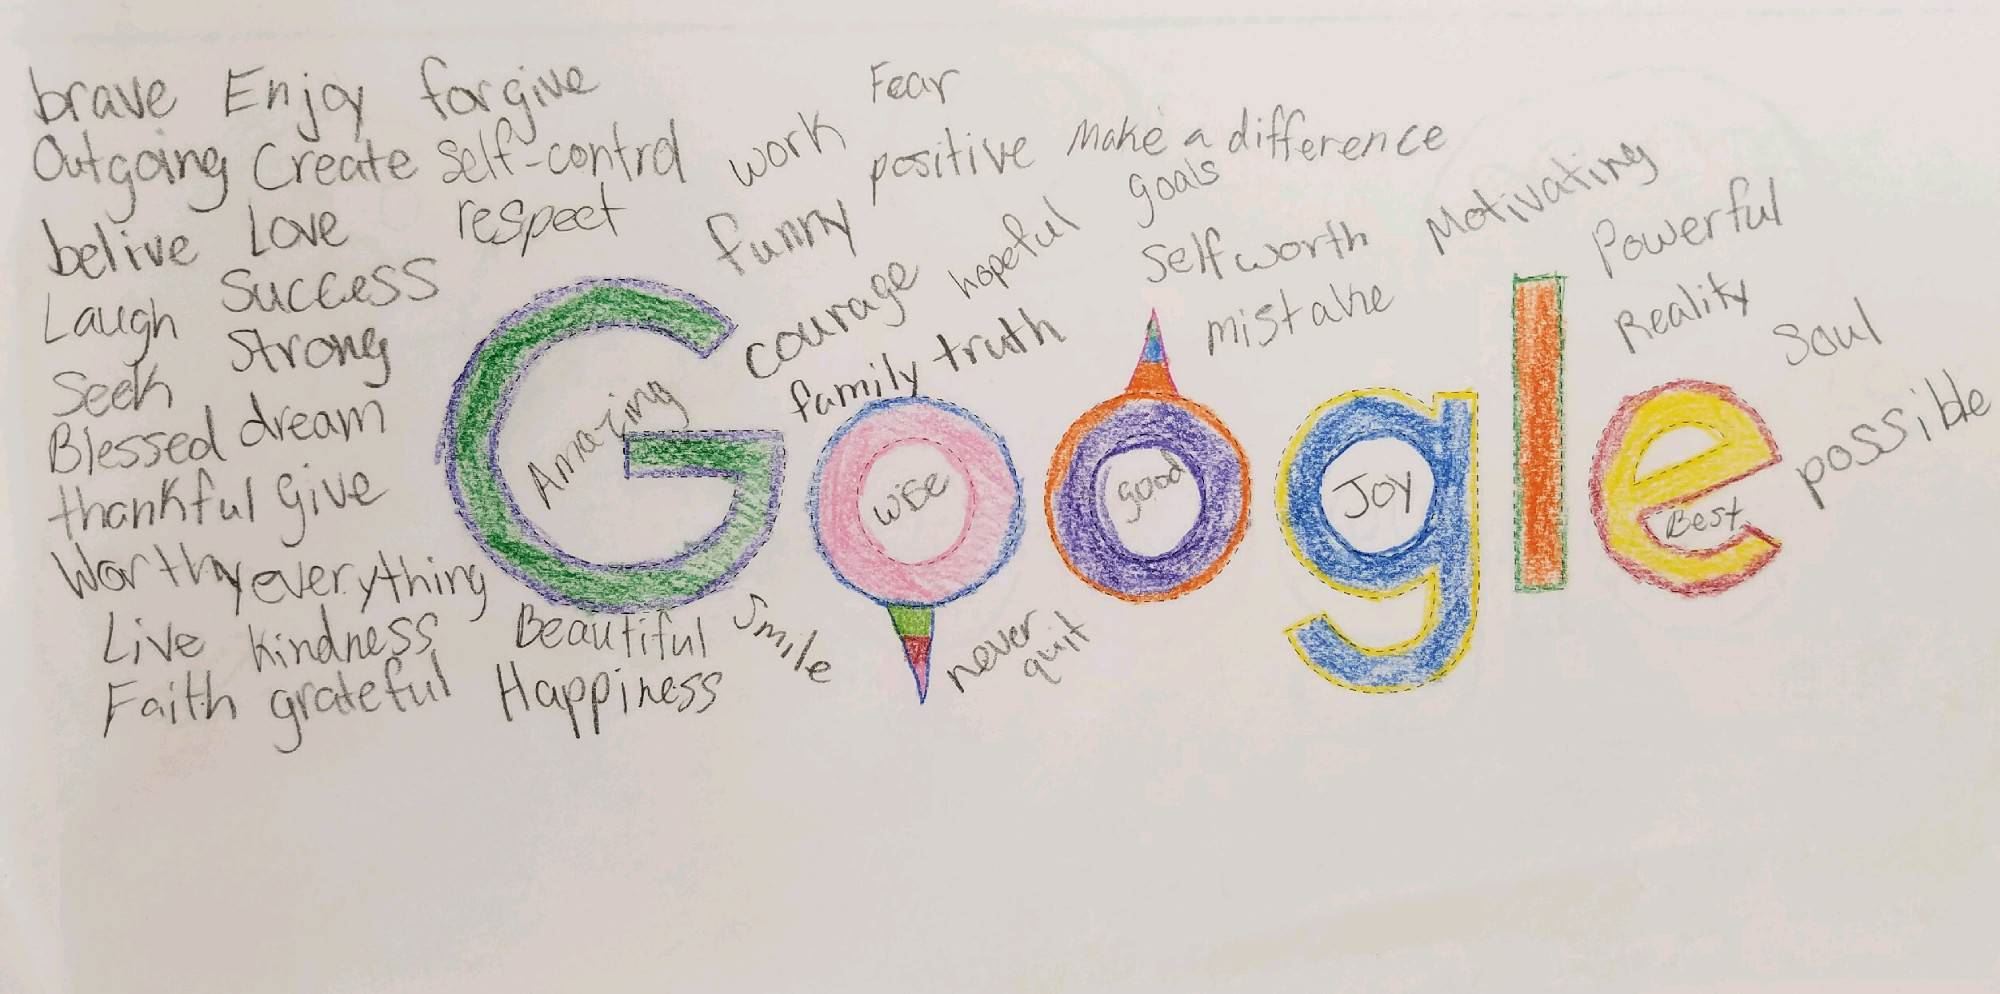 brave Enjoy forgive
Fear
Outgoing Create Self-control work positive Make a difference
belive Love respect funny hopeful goals
Selfworth Motivating Powerful
Laugh Success courage mistake Reality Soul
Seek Strong family truth
Google
Blessed dream Amazing possible
thankful Give wise good Joy Best
Worthy everything
Live kindness Beautiful Smile never quit
Faith grateful Happiness